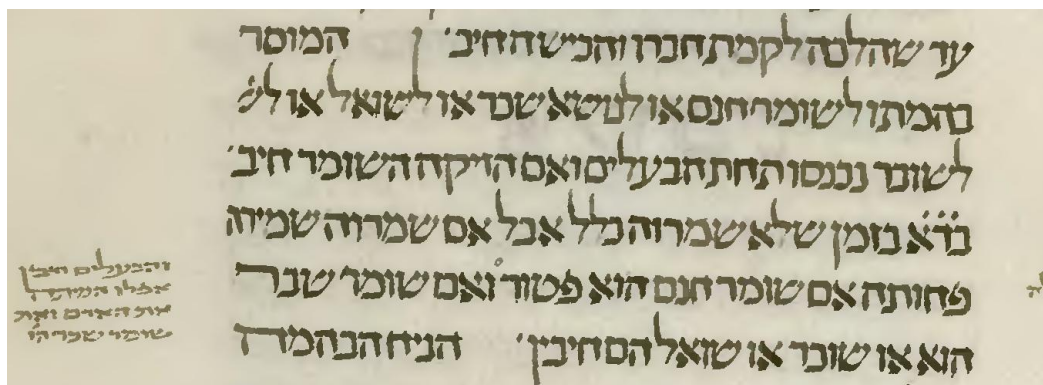 עד שהלכה לקמת חברו והכישה חיב' המוסר
בהמתו לשומר חנם או לנושא שכר או לשואל או לש
לשוכר נכנסו תחת הבעלים ואם הזיקה השומר חיב'
בד"א בזמן שלא שמרוה כלל אבל אם שמרוה שמירה
פחותה אם שומר חנם הוא פטור ואם שומר שכר
הוא או שוכר או שואל הם חיבין' הניח הבהמה
והבעלים חיבין
אפלו המיתה
את האדם ואת
שומר שכר הו